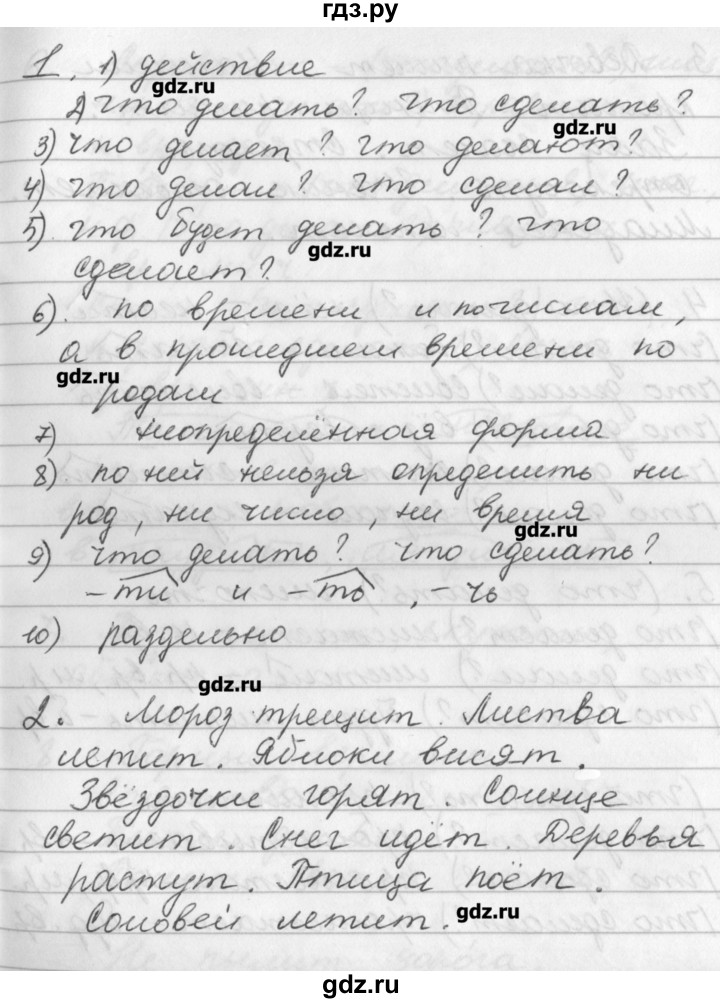 гдз.ру
1. 1) действие
gdz.ru
2) что делать? что сделать?
gdz.ru
3) что делает? что делают?
4) что делал? что сделал?
5). что будет делать? что
gdz.ru
сделает?
6). по времени и по числам,
а в прошедшем времени по
gdz.ru
родам
7) неопределённая форма
8). по ней нельзя определить ни
род, ни число, ни время
gdz.ru
9) что делать? что сделать?
-ти и -ть, -чь
10) раздельно
gdz.ru
2. Мороз трещит. Листва
летит. Яблоки висят.
Звёздочки горят. Солнце
светит. Снег идёт. Деревья
растут. Птица поёт.
Соловей летит.
gdz.ru
gdz.ru